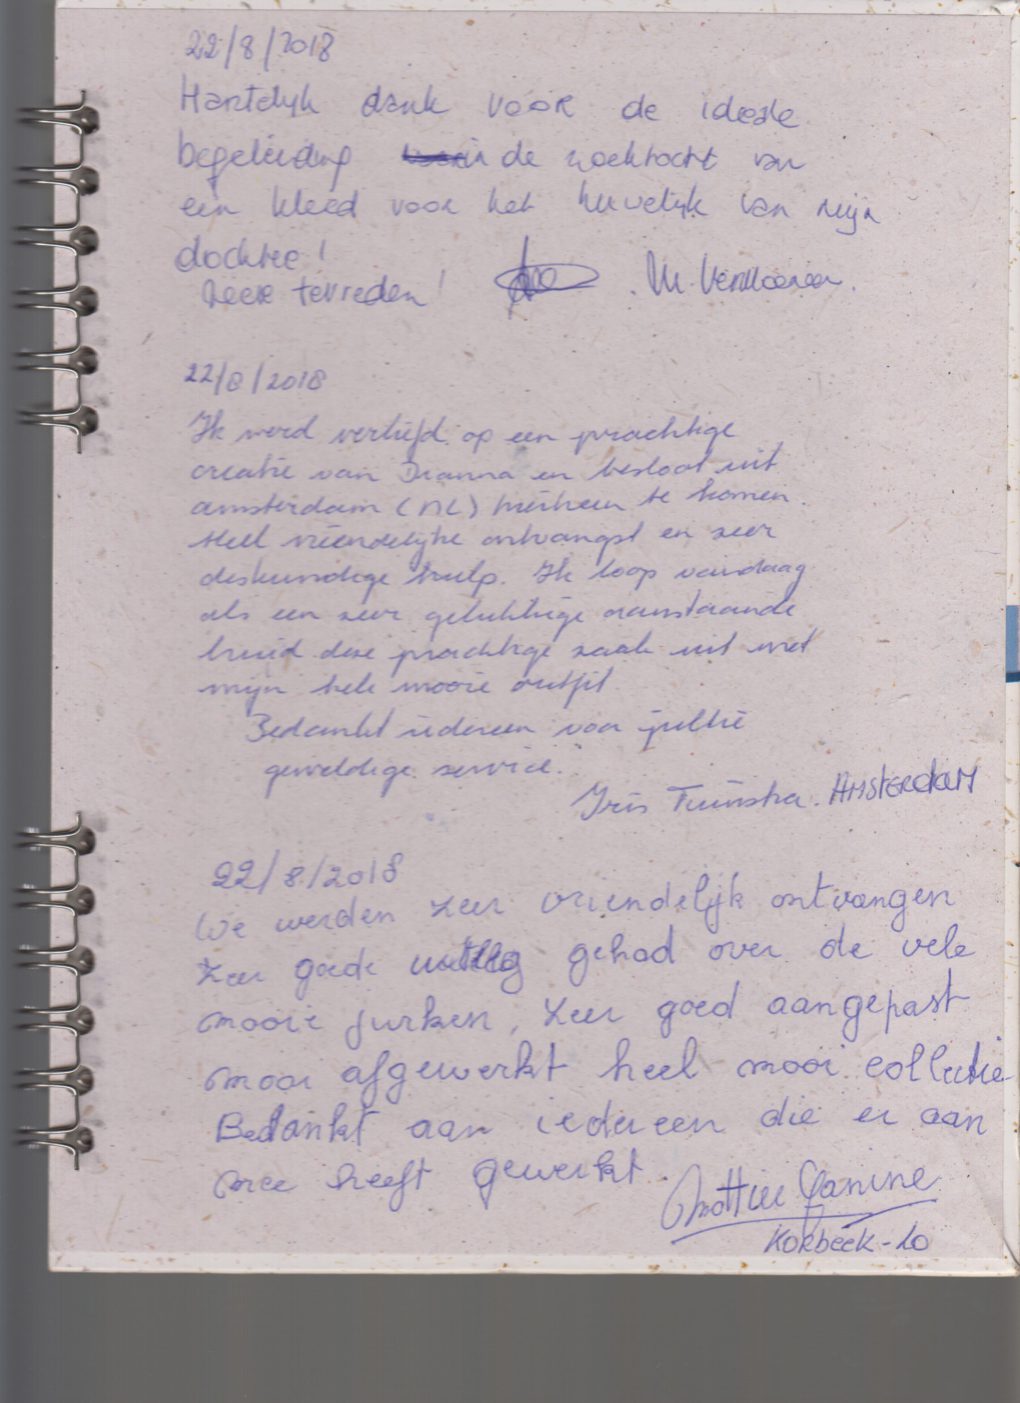 22/8/2018
Hartelijk dank voor de ideale
begeleiding in de zoektocht van
een kleed voor het huwelijk van mijn
dochter!
Zeer tevreden! M.
22/8/2018
Ik werd verliefd op een prachtige
creatie van Dianna en besloot uit
amsterdam (NL) hierheen te komen.
Heel vriendelijke ontvangst en zeer
deskundige hulp. Ik loop vandaag
als een zeer gelukkige aanstaande
bruid deze prachtige zaak uit met
mijn hele mooie outfit
Bedankt iedereen voor jullie
geweldige service.
Iris Tuinstra. AMSTERdAM
22/8/2018
We werden zeer vriendelijk ontvangen
zeer goede uitleg gehad over de vele
mooie jurken, zeer goed aangepast
mooi afgewerkt heel mooi collectie
Bedankt aan iedereen die er aan
mee heeft gewerkt.
Janine
Korbeek-Lo